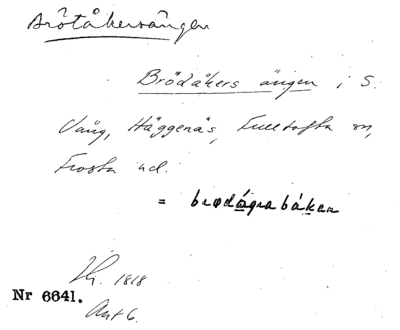 Brötåkersängen
Brödåkers ängen i S.
Väng, Häggenäs, Fulltofta sn,
Frosta hd.
= brodågrabåken
1818
Nr 6641.
Akt 6.